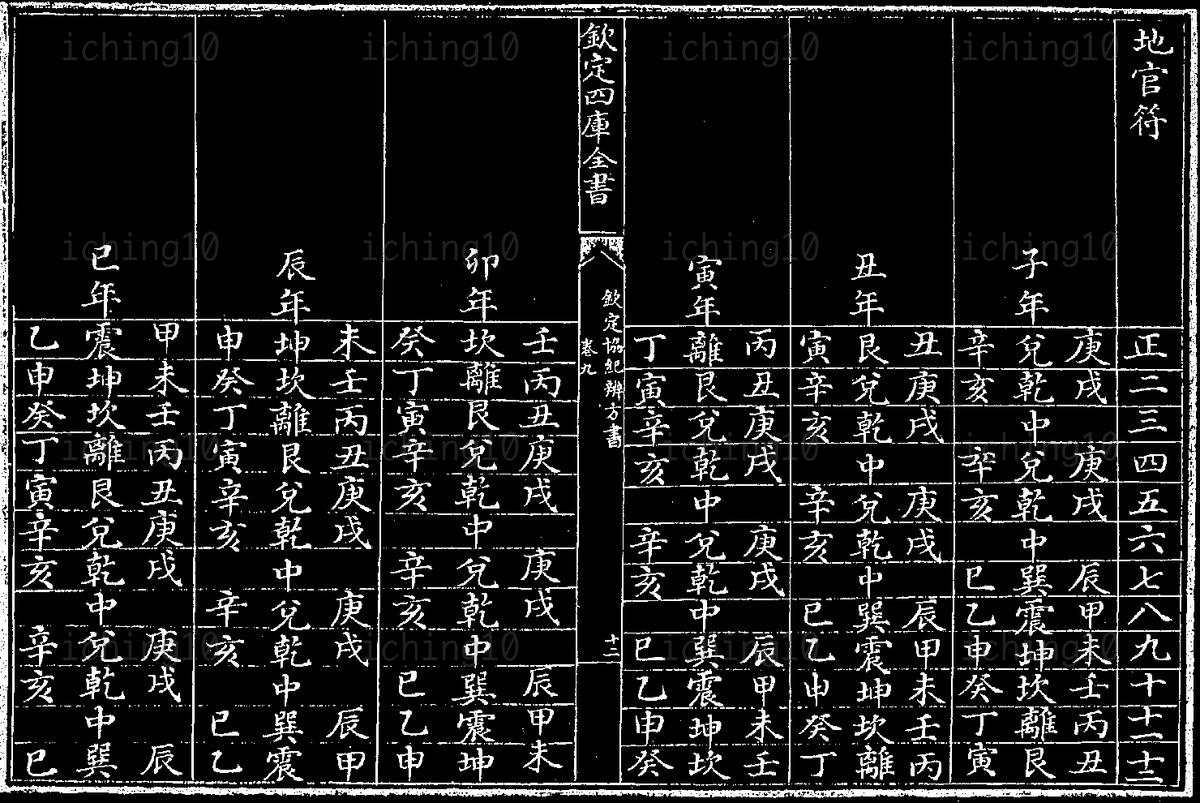 地官符
正
二
三
四
五
六
七
八
九
十
十一
十二
子年
庚兌辛
戌乾亥
中
庚兌辛
戌乾亥
中
辰巽巳
甲震乙
未坤申
壬坎癸
丙離丁
丑艮寅
丑年
丑艮寅
庚兌辛
戌乾亥
中
庚兌辛
戌乾亥
中
辰巽巳
甲震乙
未坤申
壬坎癸
丙離丁
寅年
丙離丁
丑艮寅
庚兌辛
戌乾亥
中
庚兌辛
戌乾亥
中
辰巽巳
甲震乙
未坤申
壬坎癸
欽定四庫全書
欽定協紀辨方書
卷九
十二
卯年
壬坎癸
丙離丁
丑艮寅
庚兌辛
戌乾亥
中
庚兌辛
戌乾亥
中
辰巽巳
甲震乙
未坤申
辰年
未坤申
壬坎癸
丙離丁
丑艮寅
庚兌辛
戌乾亥
中
庚兌辛
戌乾亥
中
辰巽巳
甲震乙
巳年
甲震乙
未坤申
壬坎癸
丙離丁
丑艮寅
庚兌辛
戌乾亥
中
庚兌辛
戌乾亥
中
辰巽巳
iching10 iching10 iching10 iching10
iching10 iching10 iching10 iching10
iching10 iching10 iching10 iching10
iching10 iching10 iching10 iching10